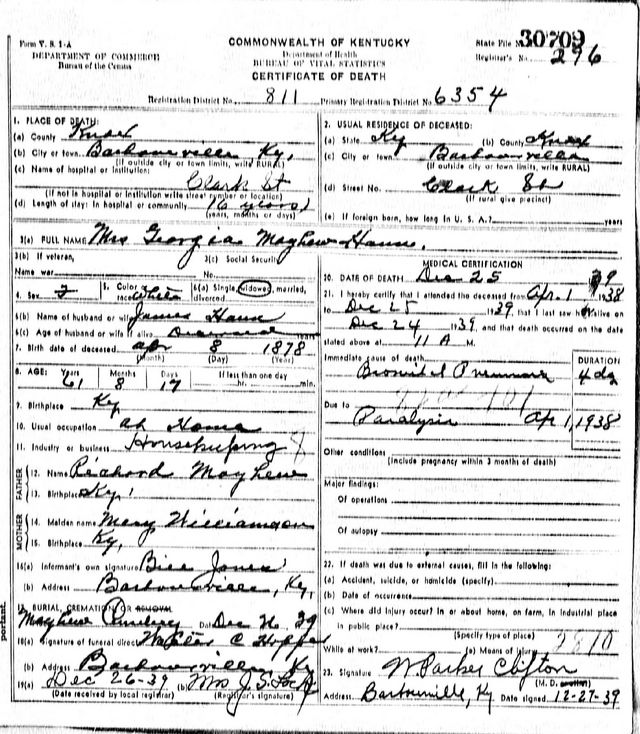 Form V. S. 1-A
DEPARTMENT OF COMMERCE
Bureau of the Census
COMMONWEALTH OF KENTUCKY
Department of Health
BUREAU OF VITAL STATISTICS
CERTIFICATE OF DEATH
State File No. 30709
Registrar's No. 296
Registration District No. 811 Primary Registration District No. 6354
1. PLACE OF DEATH:
(a) County Knox
(b) City or town Barbourville Ky.
(If outside city or town limits, write RURAL)
(c) Name of hospital or institution:
Clark St
(If not in hospital or institution write street number or location)
(d) Length of stay: In hospital or community (6 years)
(years, months or days)
2. USUAL RESIDENCE OF DECEASED:
(a) State Ky (b) County Knox
(c) City or town Barbourville
(If outside city or town limits, write RURAL)
(d) Street No. Clark St
(If rural give precinct)
(e) If foreign born, how long in U. S. A.? years
3(a) FULL NAME Mrs Georgia Mayhew
3(b) If veteran, 3(c) Social Security
Name war No.
4. Sex F 5. Color or race White 6(a) Single, widowed, married, divorced
6(b) Name of husband or wife James
6(c) Age of husband or wife if alive Deceased years
7. Birth date of deceased Apr 8 1878
(Month) (Day) (Year)
8. AGE: Years Months Days If less than one day
61 8 17 hr. min.
9. Birthplace Ky
10. Usual occupation at Home
11. Industry or business Housekeeping
FATHER
12. Name Richard Mayhew
13. Birthplace Ky.
MOTHER
14. Maiden name Mary Williamson
15. Birthplace Ky,
16(a) Informant's own signature Bill Jones
(b) Address Barbourville, Ky,
17. BURIAL, CREMATION OR REMOVAL
Mayhew Cemetery Date Dec 39
18(a) Signature of funeral director C Hopper
(b) Address Barbourville, Ky
19(a) Dec 26-39 (b) Mrs J. S.
(Date received by local registrar) (Registrar's signature)
MEDICAL CERTIFICATION
20. DATE OF DEATH Dec 25 39
21. I hereby certify that I attended the deceased from Apr. 1 1938
to Dec 25 1939, that I last saw her alive on
Dec 24 1939, and that death occurred on the date
stated above at 11 A M.
Immediate cause of death DURATION
Bronchial Pneumonia 4 da
Due to
Paralysis Apr 1, 1938
Other conditions
(Include pregnancy within 3 months of death)
Major findings:
Of operations
Of autopsy
22. If death was due to external causes, fill in the following:
(a) Accident, suicide, or homicide (specify)
(b) Date of occurrence
(c) Where did injury occur? In or about home, on farm, in industrial place
in public place?
(Specify type of place)
While at work? (e) Means of injury
23. Signature W. Parker Clifton
(M. D.
Address Barbourville, Ky Date signed 12-27-39
portant.